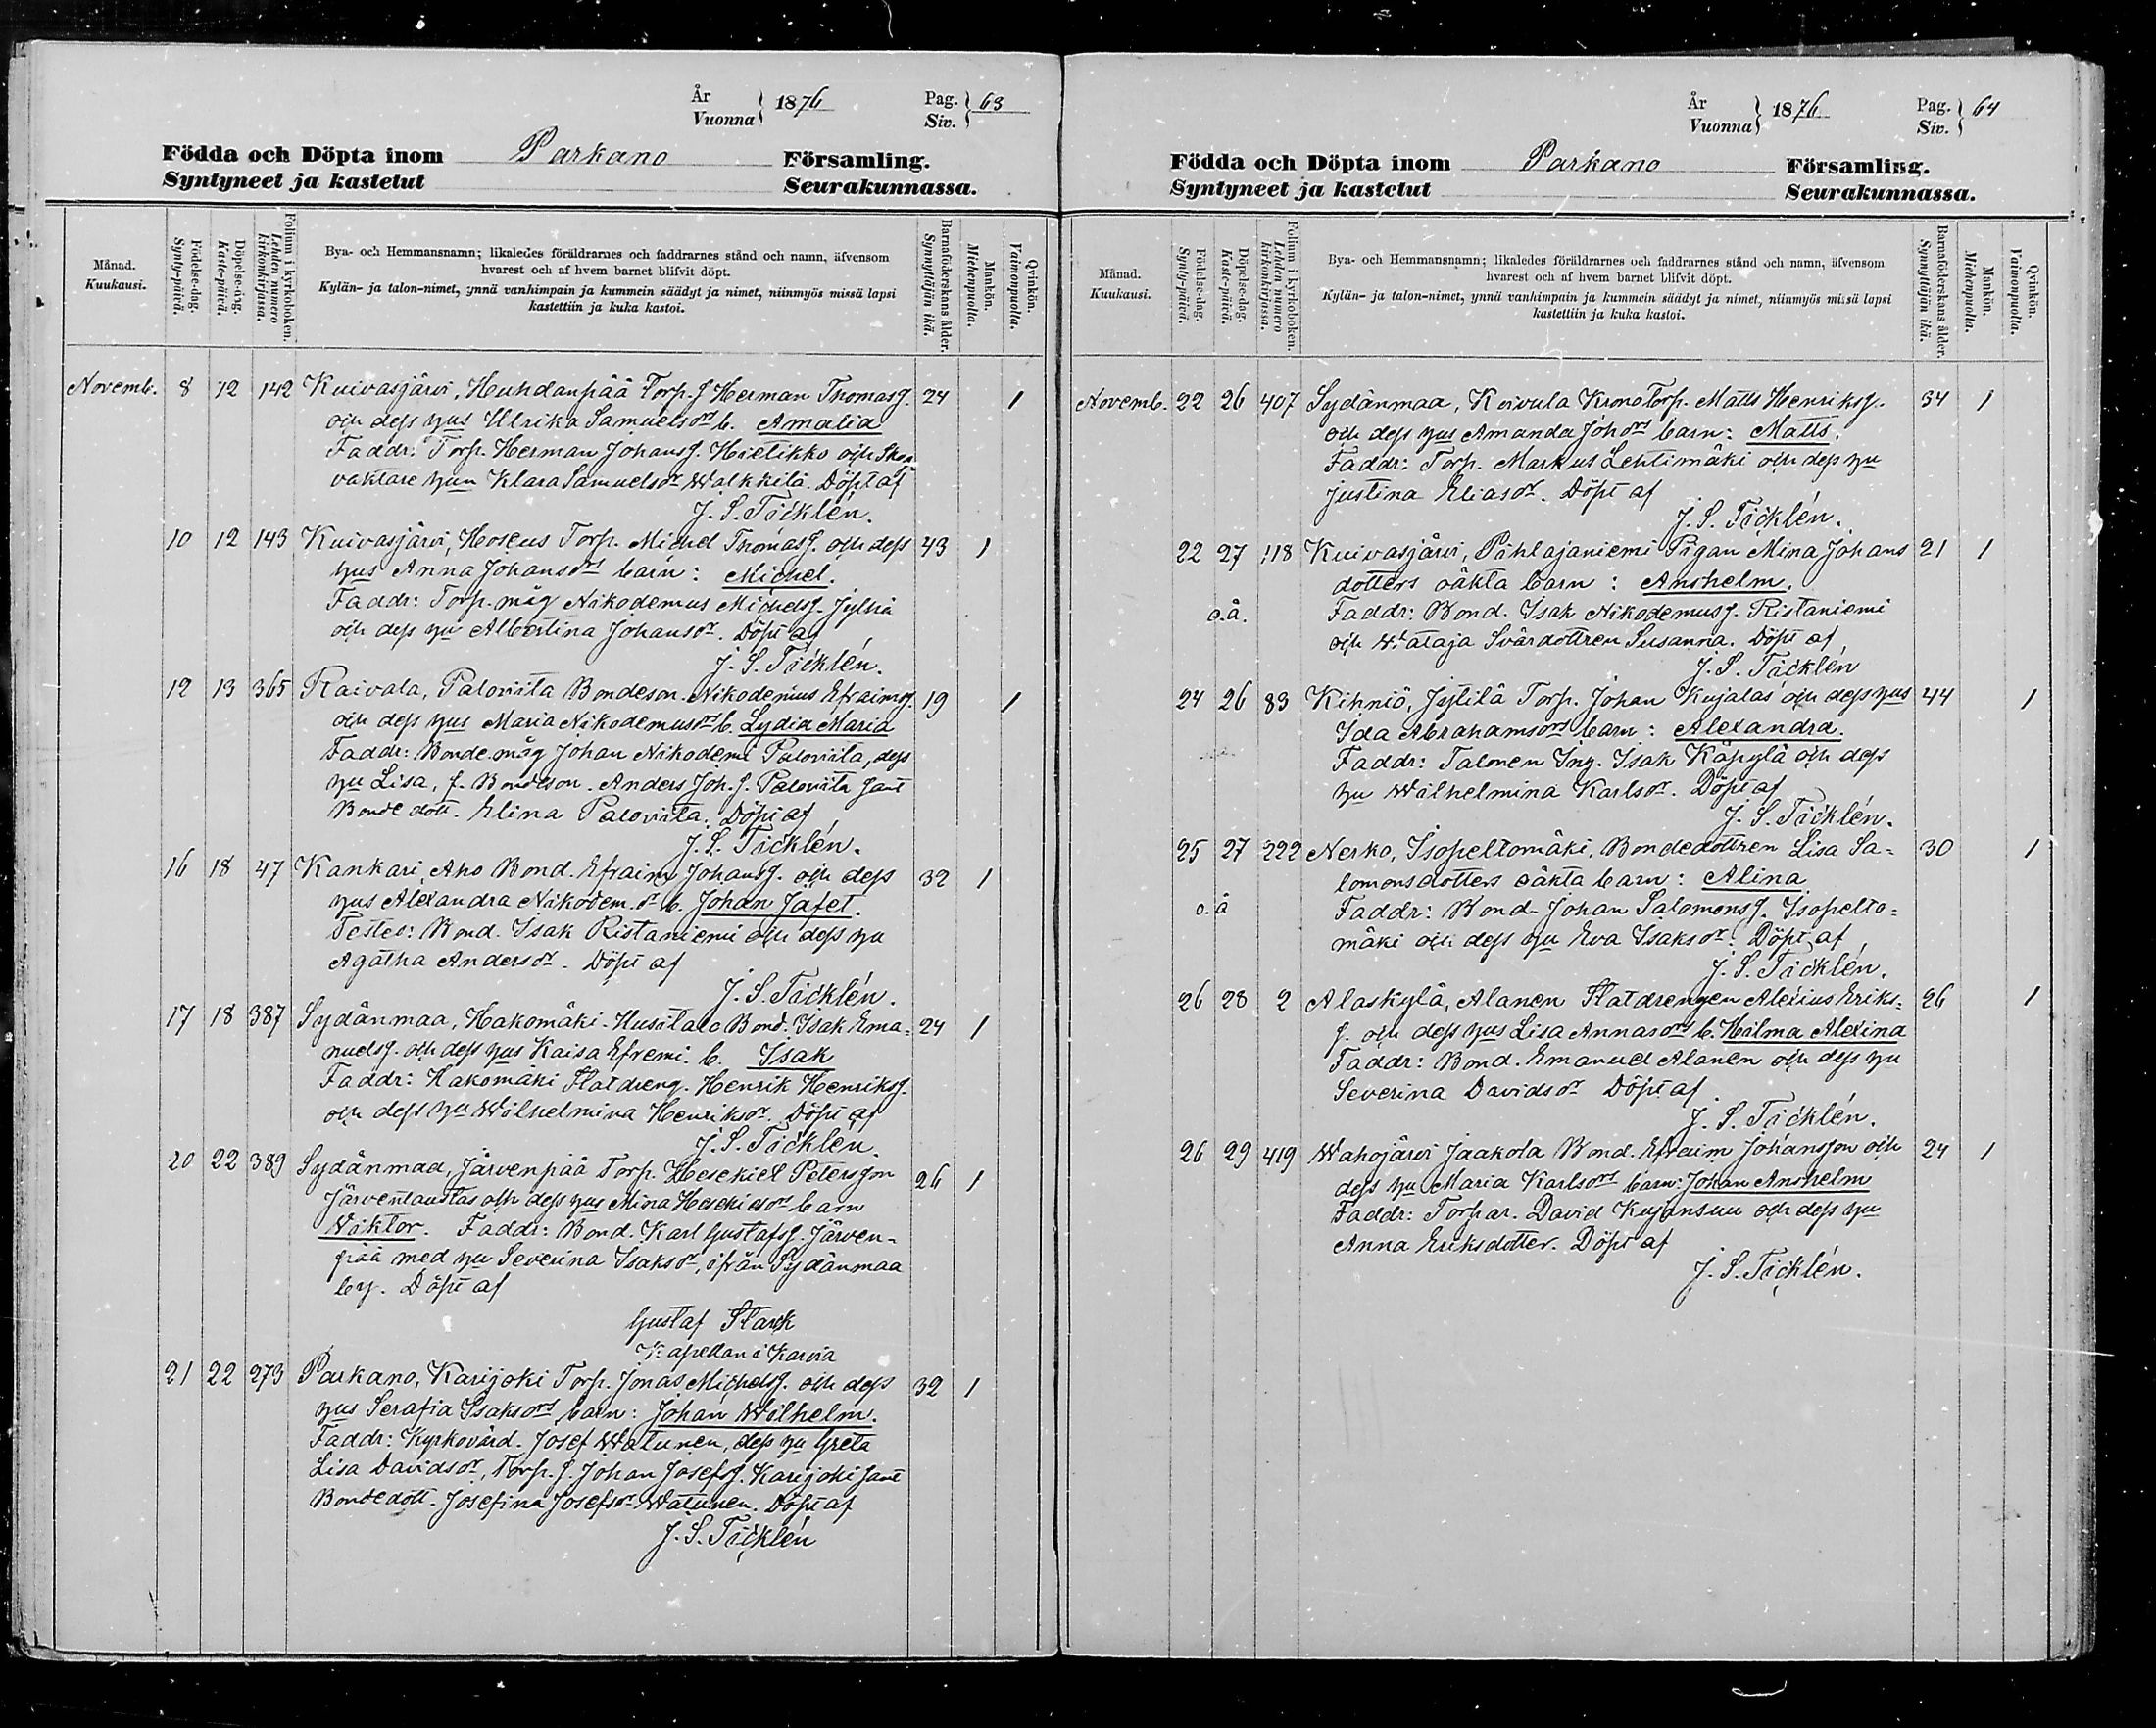 År
Vuonna } 1876
Pag.
Siv. } 63
Födda och Döpta inom Parkano Församling.
Syntyneet ja kastetut Seurakunnassa.
Månad.
Kuukausi.
Födelse-dag.
Synty-päivä.
Döpelse-dag.
Kaste-päivä.
Folium i kyrkoboken.
Lehden numero
kirkonkirjassa.
Bya- och Hemmansnamn; likaledes föräldrarnes och faddrarnes stånd och namn, äfvensom
hvarest och af hvem barnet blifvit döpt.
Kylän- ja talon-nimet, ynnä vanhimpain ja kummein säädyt ja nimet, niinmyös missä lapsi
kastettiin ja kuka kastoi.
Barnaföderskans ålder.
Synnyttäjän ikä.
Mankön.
Miehenpuolia.
Qvinkön.
Vaimonpuolia.
Novemb. 8 12 142 Kuivasjärvi, Huhdanpää Torp. s. Herman Thomass. 24 1
och dess hus Ulrika Samuelsdr b. Amalia
Faddr: Torp. Herman Johanss. Hietikko och Skog
vaktare hun Klara Samuelsdr Walkkilä. Döpt af
J. S. Täcklén.
10 12 143 Kuivasjärvi, Hoseus Torp. Michel Thomass. och dess 43 1
hus Anna Johansdrs barn: Michel.
Faddr: Torp. måg Nikodemus Michelss. Jylhä
och dess hu Albertina Johansdr. Döpt af
J. S. Täcklén.
12 13 365 Raivala, Paloviita Bondeson. Nikodemus Efraims. 19 1
och dess hus Maria Nikodemusdr b. Lydia Maria
Faddr: Bonde måg Johan Nikodemi Paloviita, dess
hu Lisa, f. Bondeson. Anders Joh. s. Paloviita samt
Bonde dott. Elina Paloviita. Döpt af
J. S. Täcklén.
16 18 47 Kankari, Aho Bond. Efraim Johanss. och dess 32 1
hus Alexandra Nikodem. dr b. Johan Jafet.
Testes: Bond. Isak Ristaniemi och dess hu
Agatha Andersdr. Döpt af
J. S. Täcklén.
17 18 387 Sydänmaa, Hakomäki-Uusitalo Bond. Isak Ema- 24 1
nuelss. och dess hus Kaisa Efremi. b. Isak
Faddr: Hakomäki Statdreng. Henrik Henrikss.
och dess hu Wilhelmina Henriksdr. Döpt af
J. S. Täcklén.
20 22 389 Sydänmaa, Järvenpää Torp. Hesekiel Petersson 26 1
Järventaustas och dess hus Mina Hesekielsdr barn
Wiktor. Faddr: Bond. Karl Gustafss. Järven-
pää med hu Severina Isaksdr, ifrån Sydänmaa
by. Döpt af
Gustaf Stark
Kapellan i Karvia
21 22 273 Parkano, Karijoki Torp. Jonas Michelss. och dess 32 1
hus Serafia Isaksdrs barn: Johan Wilhelm.
Faddr: Kyrkovärd. Josef Watunen, dess hu Greta
Lisa Davidsdr, Torp. s. Johan Josefss. Karijoki samt
Bonde dott. Josefina Josefsdr Watunen. Döpt af
J. S. Täcklén
År
Vuonna } 1876
Pag.
Siv. } 64
Födda och Döpta inom Parkano Församling.
Syntyneet ja kastetut Seurakunnassa.
Månad.
Kuukausi.
Födelse-dag.
Synty-päivä.
Döpelse-dag.
Kaste-päivä.
Folium i kyrkoboken.
Lehden numero
kirkonkirjassa.
Bya- och Hemmansnamn; likaledes föräldrarnes och faddrarnes stånd och namn, äfvensom
hvarest och af hvem barnet blifvit döpt.
Kylän- ja talon-nimet, ynnä vanhimpain ja kummein säädyt ja nimet, niinmyös missä lapsi
kastettiin ja kuka kastoi.
Barnaföderskans ålder.
Synnyttäjän ikä.
Mankön.
Miehenpuolia.
Qvinkön.
Vaimonpuolia.
Novemb. 22 26 407 Sydänmaa, Koivula KronoTorp. Matts Henrikss. 34 1
och dess hus Amanda Johdrs barn: Matts.
Faddr: Torp. Markus Lehtimäki och dess hu
Justina Eliasdr. Döpt af
J. S. Täcklén.
22 27 118 Kuivasjärvi, Pihlajaniemi Pigan Mina Johans 21 1
dotters oäkta barn: Anshelm.
o.ä. Faddr: Bond. Isak Nikodemuss. Ristaniemi
och Wataja Svärdottren Susanna. Döpt af
J. S. Täcklén
24 26 83 Kihniö, Jytilä Torp. Johan Kujalas och dess hus 44 1
Ida Abrahamsdrs barn: Alexandra.
Faddr: Talonen Ing. Isak Käpylä och dess
hu Wilhelmina Karlsdr. Döpt af
J. S. Täcklén.
25 27 222 Nerko, Isopeltomäki, Bondedottren Lisa Sa- 30 1
lomonsdotters oäkta barn: Alina
o.ä Faddr: Bond. Johan Salomonss. Isopelto-
mäki och dess hu Eva Isaksdr. Döpt af
J. S. Täcklén.
26 28 2 Alaskylä, Alanen Statdrengen Alexius Eriks- 26 1
s. och dess hus Lisa Annasdrs b. Hilma Alexina
Faddr: Bond. Emanuel Alanen och dess hu
Severina Davidsdr Döpt af
J. S. Täcklén.
26 29 419 Wahojärvi Jaakola Bond. Efraim Johansson och 24 1
dess hu Maria Karlsdrs barn: Johan Anshelm
Faddr: Torpar. David Kujansuu och dess hu
Anna Eriksdotter. Döpt af
J. S. Täcklén.